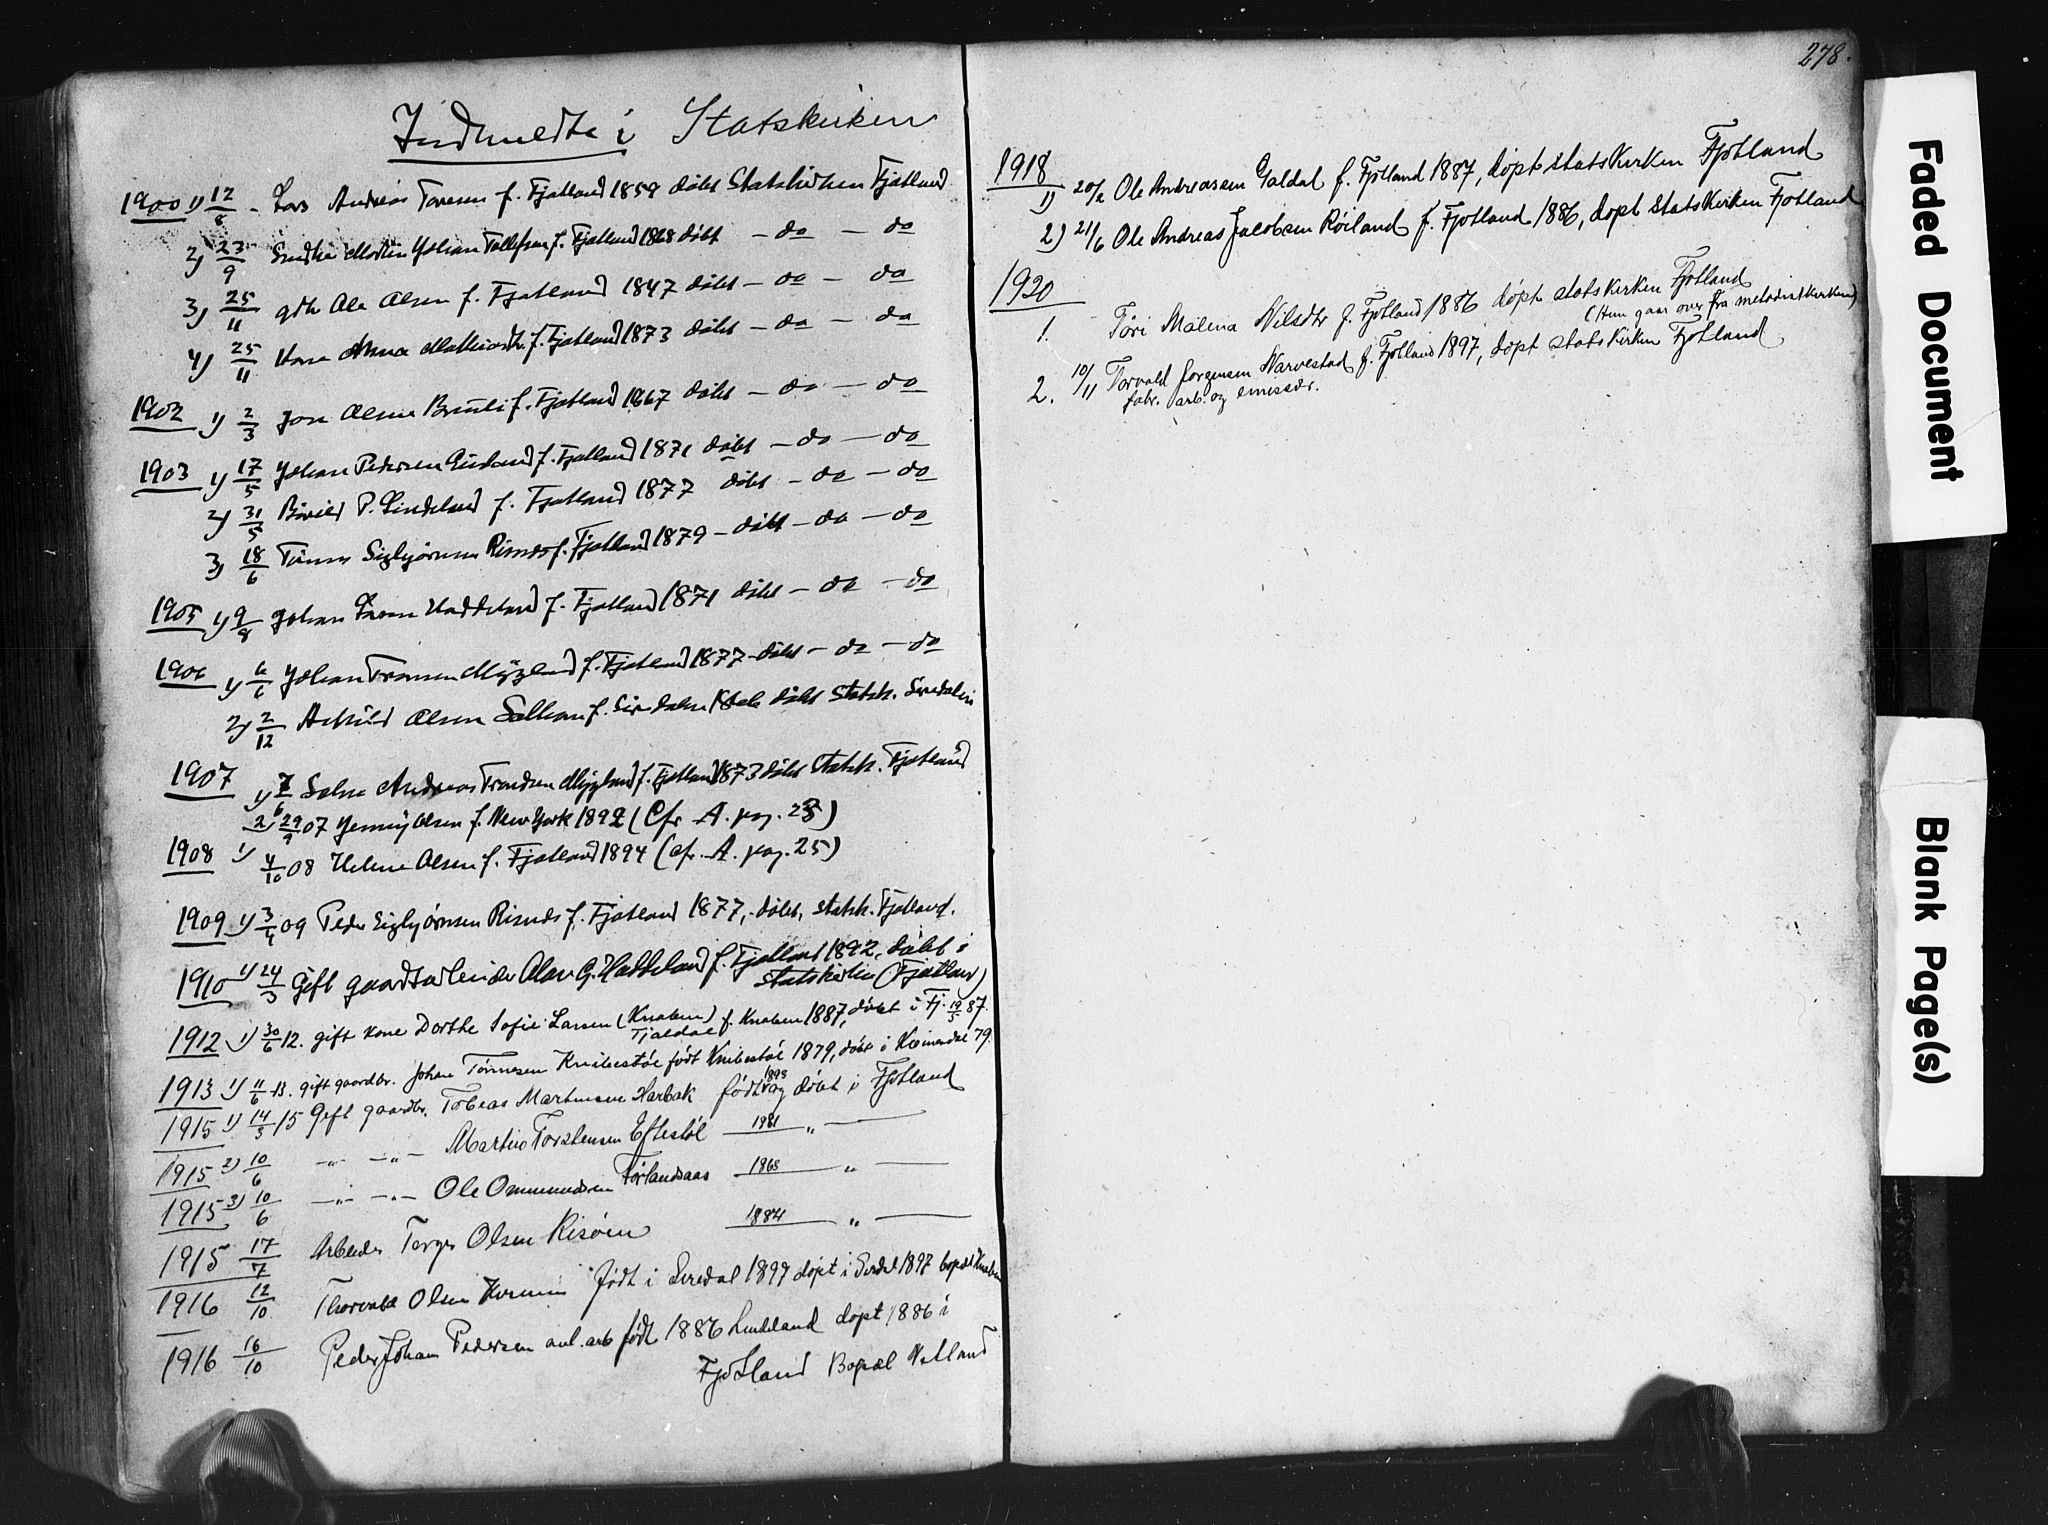 Indmeldte i Statskirken
1900 1) 12/8 - Lars Andreas f. Fjotland 1859 døbt Statskirken Fjotland
2) 23/9 Martin Johan Tollefsen f. Fjotland 1868 døbt - do - do
3) 25/11 gdb Ole Olsen f. Fjotland 1847 døbt - do - do
4) 25/11 Kone Anna f. Fjotland 1873 døbt - do - do
1902 1) 2/3 Olsen f. Fjotland 1867 døbt - do - do
1903 1) 17/5 Johan Pedersen f. Fjotland 1871 døbt - do - do
2) 31/5 P. Lindeland f. Fjotland 1877 døbt - do - do
3) 18/6 Tønnes Sigbjørnsen Risnes f. Fjotland 1879 - døbt - do - do
1905 1) 9/8 Johan Haddeland f. Fjotland 1871 døbt - do - do
1906 1) 6/6 Johan Tronsen Mygland f. Fjotland 1877 - døbt - do - do
2) 2/12 Olsen f. Siredalen døbt Statsk. Siredalen
1907 1) 7/6 Andreas Trondsen Mygland f. Fjotland 1873 døbt Statsk. Fjotland
2 29/9 07 Jenny Olsen f. New York 1892 (Cfr A. pag. 25)
1908 1) 4/10 08 Helene Olsen f. Fjotland 1894 (cfr. A. pag. 25)
1909 1) 3/4 09 Peder Sigbjørnsen Risnes f. Fjotland 1877, døbt, statsk. Fjotland.
1910 1) 24/3 Gift gaardarbeider Olav G. Haddeland f. Fjotland 1892, døbt i
statskirken (Fjotland)
1912 1) 30/6 12. gift kone Dorthe Sofie Larsen (Knaben) f. Knaben 1887, døbt i Fj. 19/5 87.
Fjeldal
1913 1) 11/6 13. gift gaardbr. Johan Tønnesen Knibestøl født Knibestøl 1879, døbt i Kvinesdal 79.
1915 1) 14/3 15 Gift gaardbr. Tobeas Martinsen Harbak født 1895 og døbt i Fjotland
1915 2) 10/6 -"- -"- Martin Torstensen Eftestøl 1881 "
1915 3) 10/6 -"- -"- Ole Ommundsen Førlandsaas 1868 "
1915 17/7 Arbeider Terger Olsen Risøen 1884 "
1916 12/10 Thorvald Olsen født i Siredal 1897 døpt i Sirdal 1897 bopæl Knaben
1916 16/10 Peder Johan Pedersen anl. arb født 1886 Lindeland døpt 1886 i
Fjotland Bopæl Netland
278.
1918
1) 20/2 Ole Andreasen Galdal f. Fjotland 1887, døpt statskirken Fjotland
2) 21/6 Ole Andreas Jacobsen Røiland f. Fjotland 1886, døpt statskirken Fjotland
1920
1. Tøri Malena Nilsdtr f. Fjotland 1886 døpt statskirken Fjotland
(Hun gaar over fra metodistkirken)
2. 10/11 Torvald Jorgensen Narvestad f. Fjotland 1897, døpt statskirken Fjotland
fabr. arb. og emissær.
Faded Document
Blank Page(s)